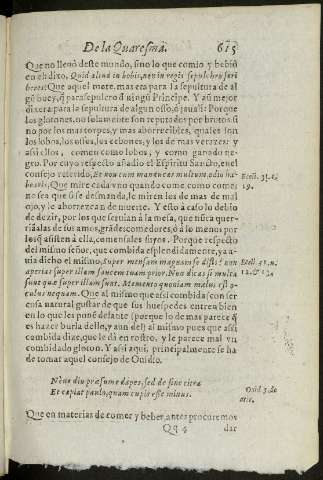 De la Quaresma. 615
Que no lleuó deste mundo, sino lo que comio y bebió
en el dixo, Quid aliud in bobis, non in regis sepulchro scri
beres? Que aquel mote, mas era para la sepultura de al
gũ buey, q̃ para sepulcro d̃ ningũ Principe. Y aũ mejor
dixera para la sepultura de algun osso, ó jauali: Porque
los glotones, no solamente son reputados por brutos: si
no por los mas torpes, y mas aborrecibles, quales son
los lobos, los osses, los cebones, y los de mas verazes: y
assi ellos, comen como lobos, y como ganado ne-
gro. Por cuyo respecto añadio el Espiritu Sancto, en el
consejo referido, Et non cum manduces multum odio ha-
bearis, Que mire cada vno quando come, como come:
no sea que ó se desmande, le miren los de mas de mal
ojo, y le aborrezcan de muerte. Y esto à caso lo debio
de dezir, por los que seruian á la mesa, que nũca querriã
á las de sus amos, grãdes comedores, ó á lo menos por
los q̃ assisten á ella, comensales suyos. Porque respecto
del mismo señor, que combida esplendidamente, ya a-
uia dicho el mismo, Super mensam magnam se disti? non
aperias super illam faucem tuam prior. Non dicas si multa
sunt quæ super illam sunt. Memento quoniam malus est o-
culus nequam. Que al mismo que assi combida (con ser
cosa natural gustar de que sus huespedes entren bien
en lo que les pone delante (porque lo de mas parece q̃
es hazer burla delle, y aun del) al mismo pues que assi
combida dize, que le dá en rostro, y le parece mal vn
combidado gloton. Y assi aqui, principalmente se ha
de tomar aquel consejo de Ouidio.
Eccli. 31. c.
19.
Eccli. 31. n.
12. & 13.
diu præsume dapes, sed desine citra
Et capiat paulo, quam cupit esse minus.
Ouid. 3. de
arte.
Que en materias de comer y beber, antes procuremos
Qq 4 dar